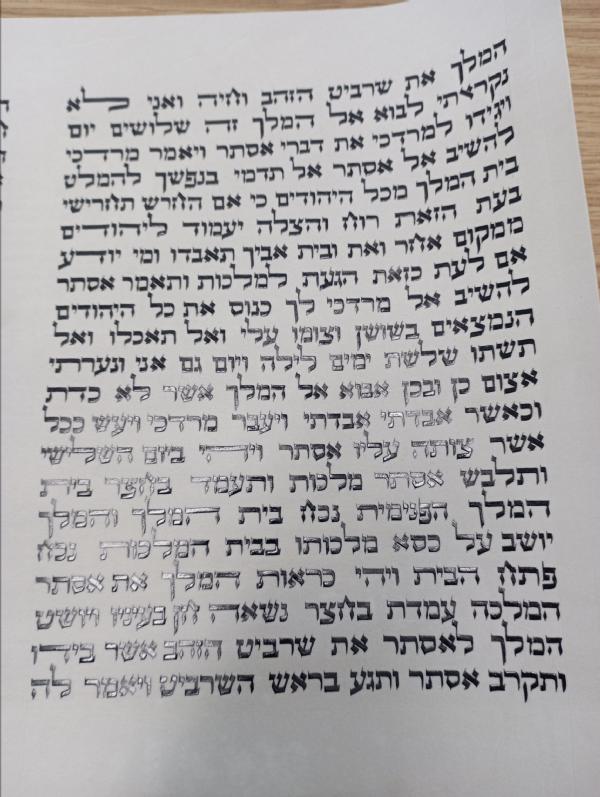 המלך את שרביט הזהב וחיה ואני לא
נקראתי לבוא אל המלך זה שלושים יום
ויגידו למרדכי את דברי אסתר ויאמר מרדכי
להשיב אל אסתר אל תדמי בנפשך להמלט
בית המלך מכל היהודים כי אם החרש תחרישי
בעת הזאת רוח והצלה יעמוד ליהודים
ממקום אחר ואת ובית אביך תאבדו ומי יודע
אם לעת כזאת הגעת למלכות ותאמר אסתר
להשיב אל מרדכי לך כנוס את כל היהודים
הנמצאים בשושן וצומו עלי ואל תאכלו ואל
תשתו שלשת ימים לילה ויום גם אני ונערתי
אצום כן ובכן אבוא אל המלך אשר לא כדת
וכאשר אבדתי אבדתי ויעבר מרדכי ויעש ככל
אשר צותה עליו אסתר ויהי ביום השלישי
ותלבש אסתר מלכות ותעמד בחצר בית
המלך הפנימית נכח בית המלך והמלך
יושב על כסא מלכותו בבית המלכות נכח
פתח הבית ויהי כראות המלך את אסתר
המלכה עמדת בחצר נשאה חן בעיניו ויושט
המלך לאסתר את שרביט הזהב אשר בידו
ותקרב אסתר ותגע בראש השרביט ויאמר לה